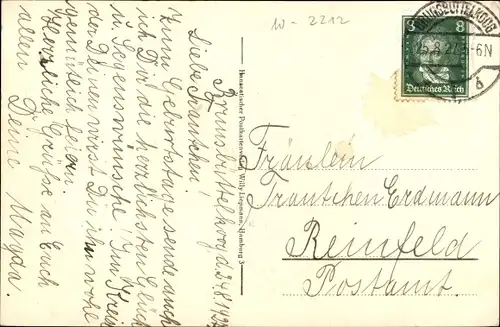 W-2212
BRUNSBÜTTELKOOG
25.8.27.5-6N
b
8 8
Deutsches Reich
Brunsbüttelkoog d. 24.8.192
Liebe Trautchen!
Zum Geburtstage sende auch
ich Dir die herzlichsten Glück
u. Segenswünsche! Im Kreise
der Deinen wirst Du ihn wohl
gemütlich feiern
Herzliche Grüße an Euch
allen
Deine Magda.
Hanseatischer Postkartenverlag Willy Liepmann, Hamburg 3
Fräulein
Trautchen Erdmann
Reinfeld
Postamt.